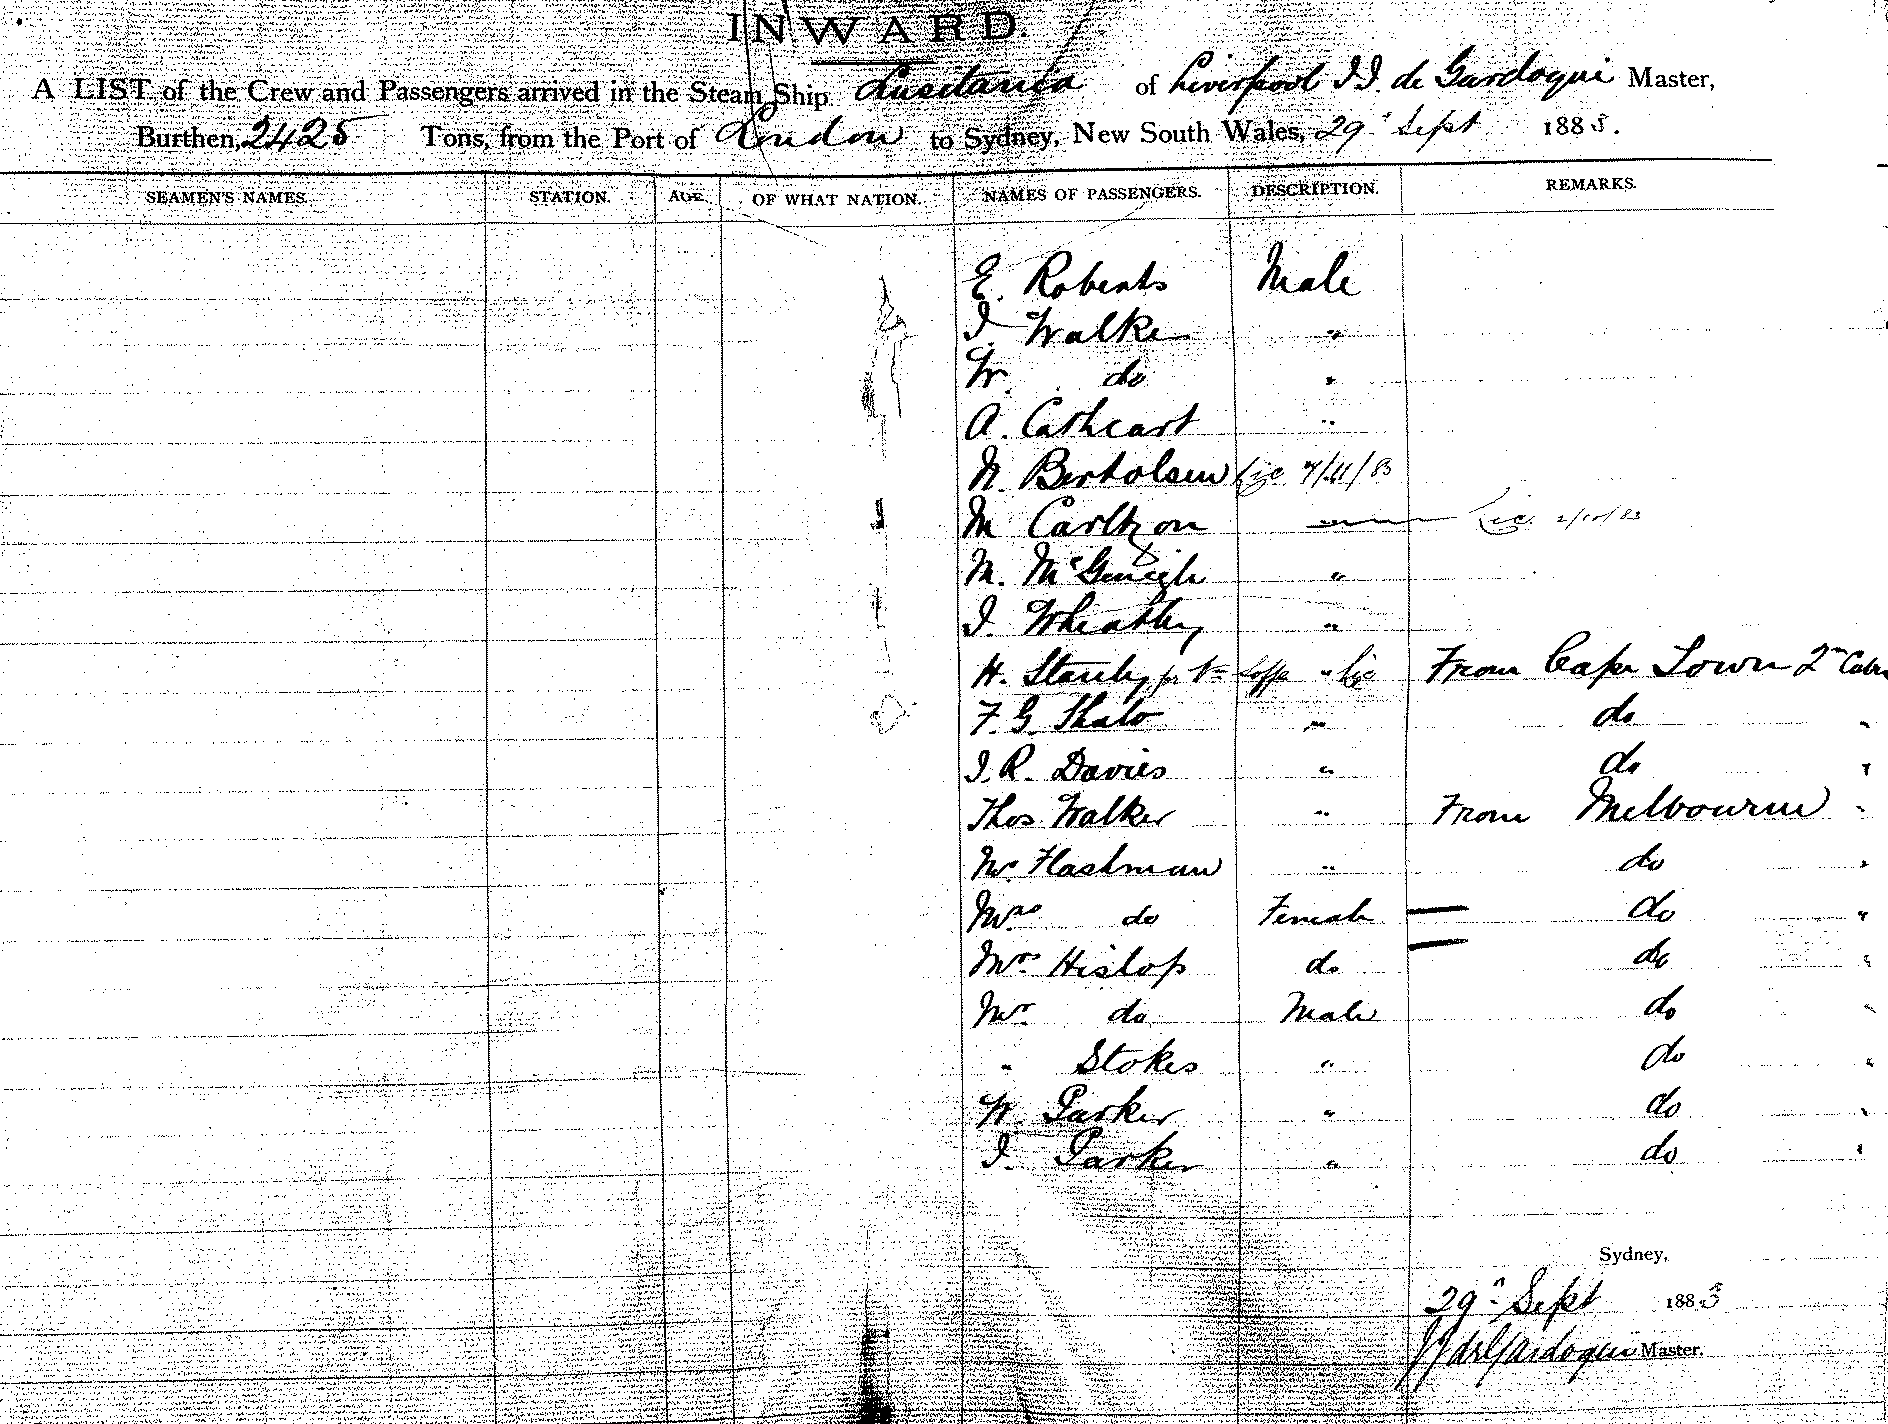 INWARD.
A LIST of the Crew and Passengers arrived in the Steam Ship Lusitania of Liverpool J.J. de Gardoqui Master,
Burthen, 2425 Tons, from the Port of London to Sydney, New South Wales, 29th Sept 1883.
SEAMEN'S NAMES. STATION. AGE. OF WHAT NATION. NAMES OF PASSENGERS. DESCRIPTION. REMARKS.
E. Roberts Male
J. Walker "
W. do "
A. Cathcart "
N. Bertolsen Lic 7/11/83
M Carlzon Lic. 2/10/83
M. McGuigh "
J. Wheatley "
H. Stanley " Lic From Cape Town 2nd Cabin
F. G. Thalo " do "
J. R. Davies " do "
Thos Walker " From Melbourne "
Mr. Flashman " do "
Mrs do Female do "
Mrs Hislop do do "
Mr. do Male do "
" Stokes " do "
W. Parker " do "
J. Parker " do "
Sydney,
29th Sept 1883
JJ de Gardoqui Master.